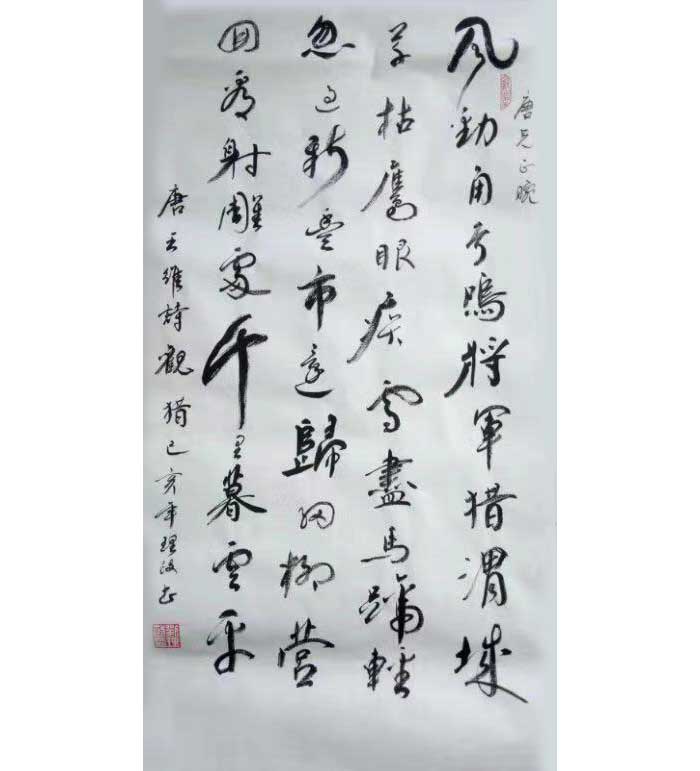 唐兄正腕
风勁角弓鳴將軍猎渭城
草枯鷹眼疾雪盡馬蹄輕
忽过新豐市还歸细柳營
回看射雕處千里暮雲平
唐王維詩觀猎己亥年理波书